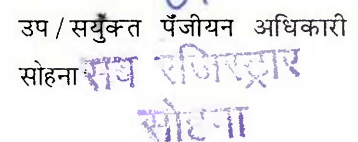 उप / सयुॅंक्त पॅंजीयन अधिकारी
सोहना सब रजिस्ट्रार
सोहना